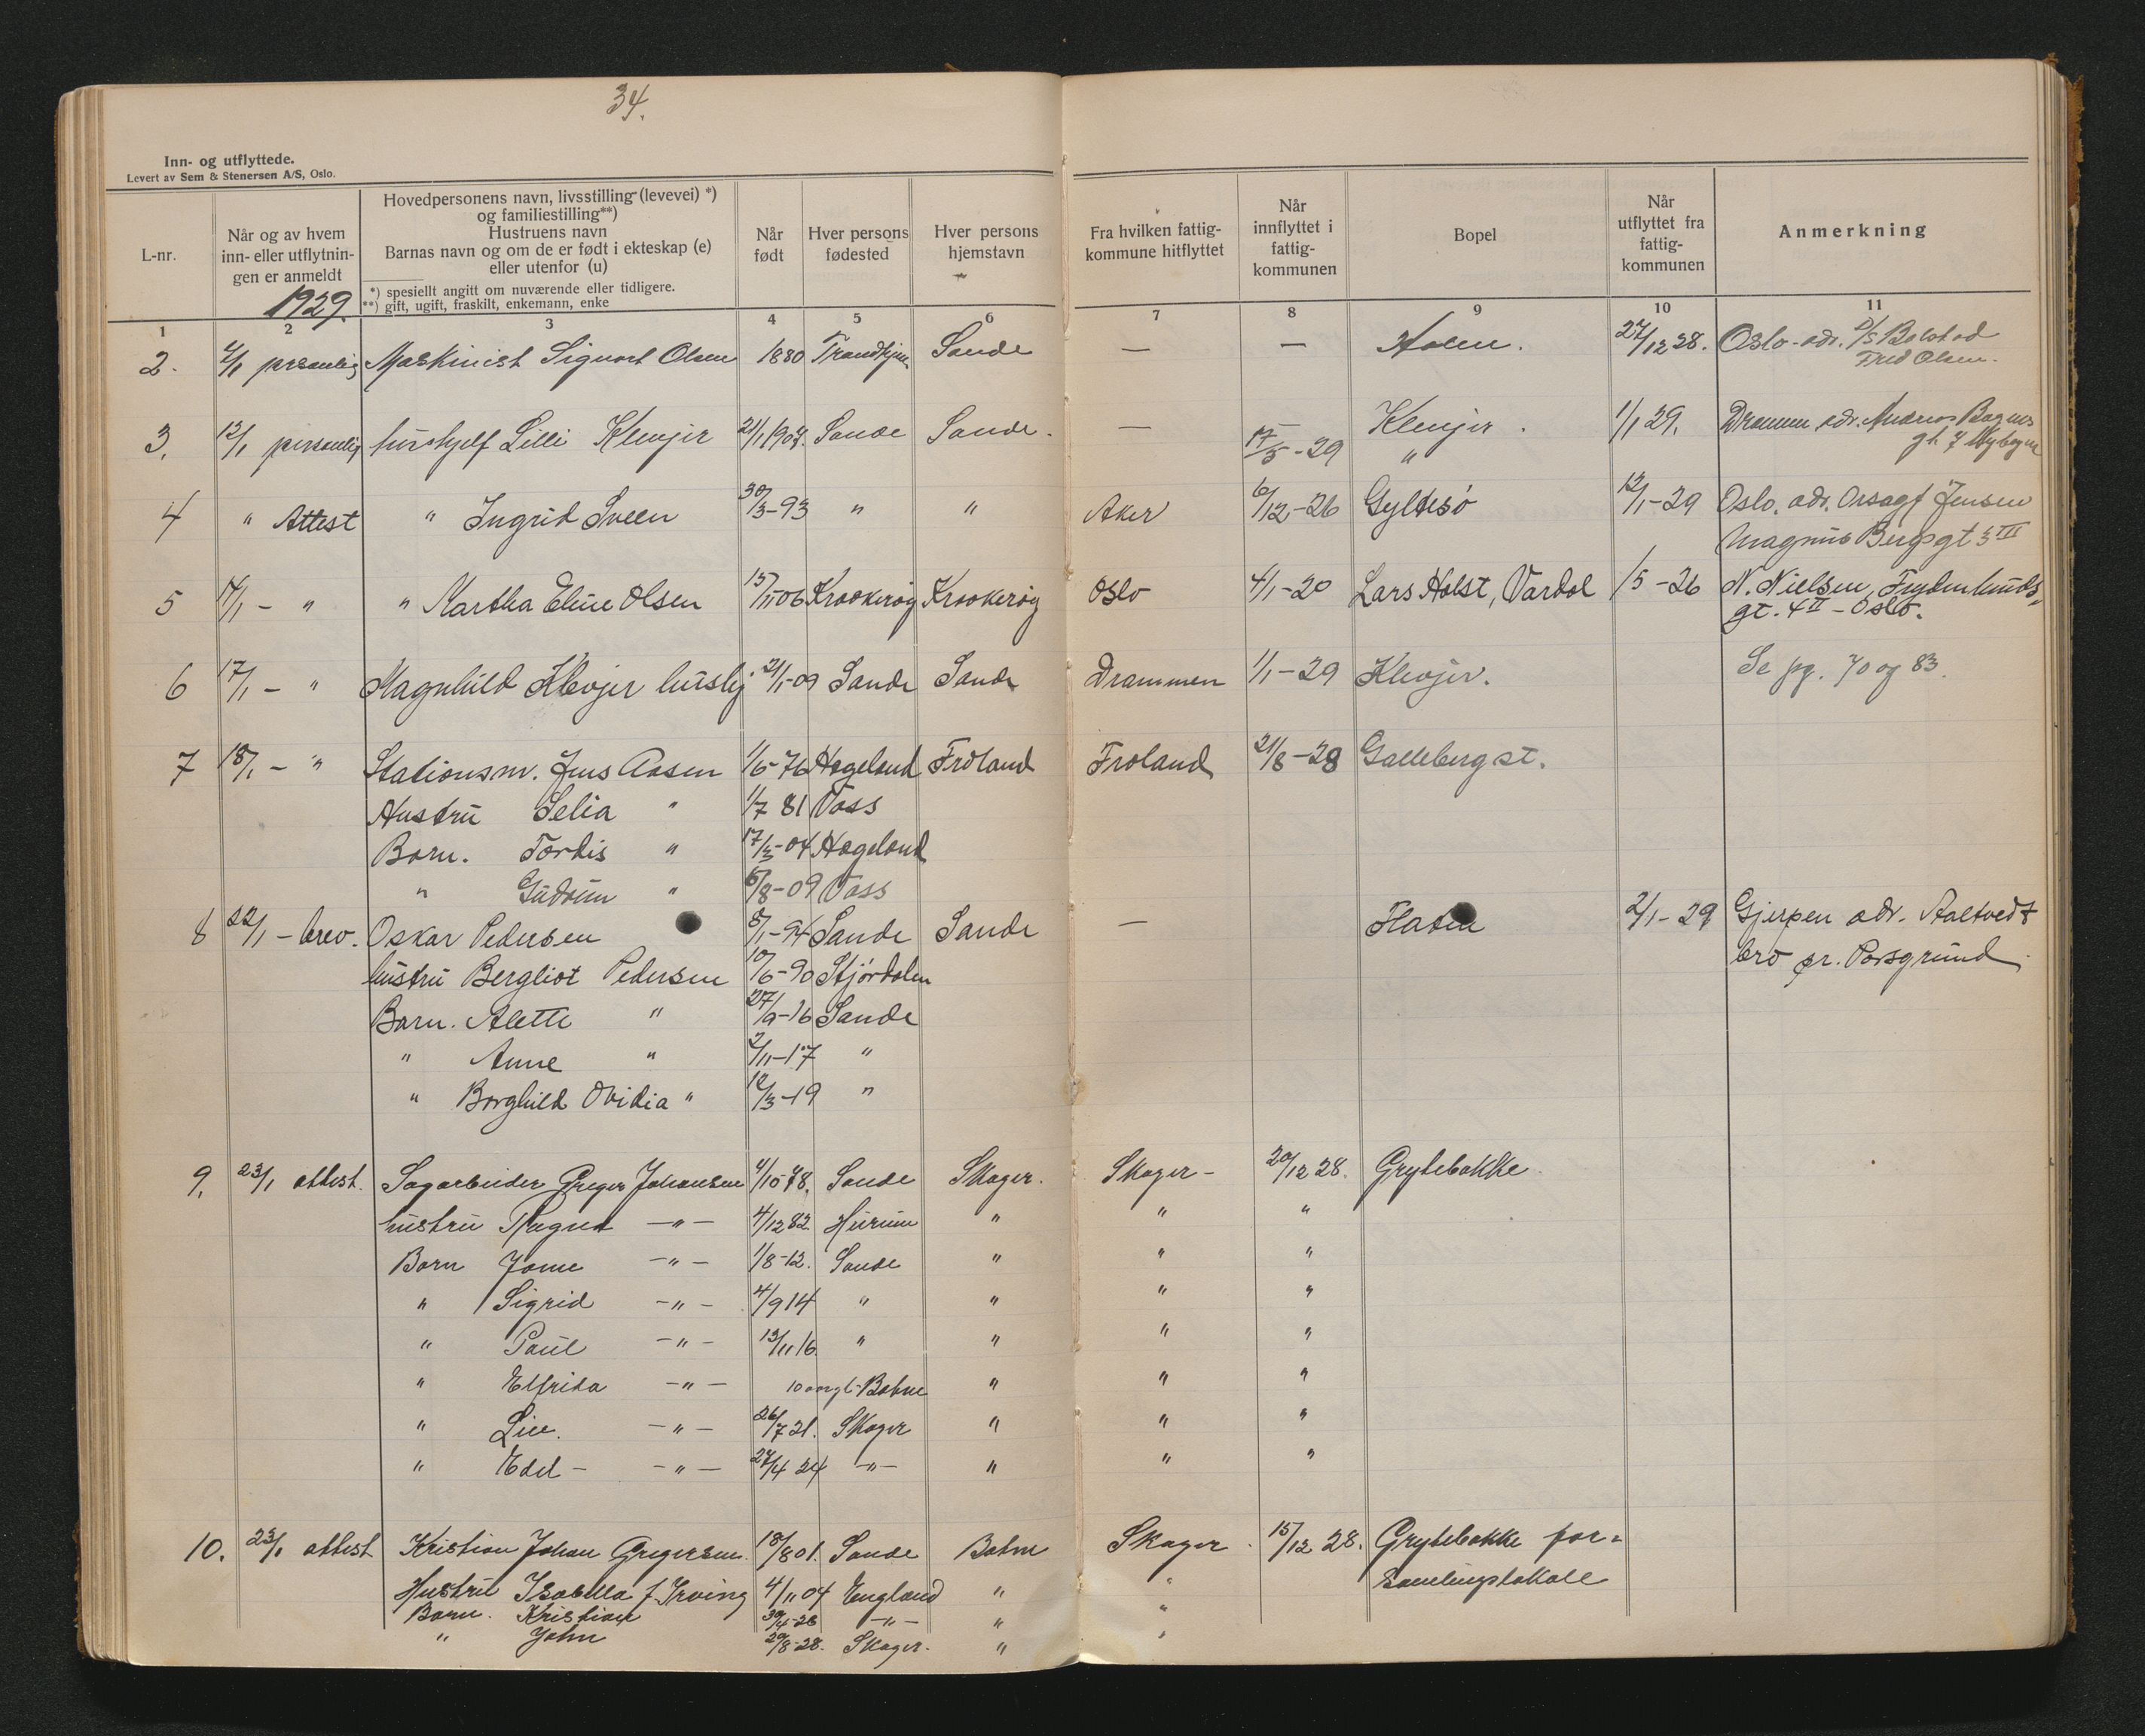 34.
Inn- og utflyttede.
Levert av Sem & Stenersen A/S, Oslo.
L-nr.
Når og av hvem
inn- eller utflytnin-
gen er anmeldt
1929.
Hovedpersonens navn, livsstilling (levevei) *)
og familiestilling**)
Hustruens navn
Barnas navn og om de er født i ekteskap (e)
eller utenfor (u)
*) spesiellt angitt om nuværende eller tidligere.
**) gift, ugift, fraskilt, enkemann, enke
Når
født
Hver persons
fødested
Hver persons
hjemstavn
Fra hvilken fattig-
kommune hitflyttet
Når
innflyttet i
fattig-
kommunen
Bopel
Når
utflyttet fra
fattig-
kommunen
Anmerkning
1 2 3 4 5 6 7 8 9 10 11
2. personlig Maskinist Sigvart Olsen 1880 Trondhjem Sande — — Holm. 27/12 28. Oslo - adr. D/S Bolstad
Fred Olsen.
3. 12/1 personlig hushjelp Lilli Klevjer 21/1 Sande Sande. — Klevjer. 1/1 29. Drammen adr.
17/5-29 "
4 " Attest " Ingrid Sveen 30/3-93 " " Aker 6/12-26 Gyltesø 12/1-29 Oslo. adr. Jensen
Magnus Bergsgt 3 III
5 14/1 - " " Martha Eline Olsen 15/11 06 Kraakerøy Kraakerøy Oslo 4/1-20 Lars Holst, Vardal /5-26 N. Nielsen, Frydenlunds-
gt. 4 II - Oslo.
6 17/1 - " Magnhild Klevjer hushj 21/1-09 Sande Sande Drammen 1/1-29 Klevjer. Se pg. 70 og 83.
7 18/1 - " Stationsm. Jens Aasen 1/6-76 Hegeland Froland Froland 21/8-28 Galleberg st.
Hustru Selia " 1/7 81 Voss
Barn. Tordis " 17/3-04 Hægeland
" Gudrun " 6/8-09 Voss
8 22/1 - brev. Oskar Pedersen 8/1-94 Sande Sande — Flaten 2/1-29 Gjerpen adr. Aaltvedt
bro pr. Porsgrund.
hustru Bergliot Pedersen 10/6-90 Stjørdalen
Barn. Alette " 27/9-16 Sande
" Anne " 2/11-17 "
" Borghild Ovidia " 12/3-19 "
9. 23/1 attest. Sagarbeider Greger Johansen 4/10 78. Sande Skoger. Skoger - 20/12 28. Grytebakke.
hustru Ragna —"— 4/12 82. Hurum " " "
Barn —"— 1/8-12. Sande " " "
" Sigrid —"— 4/9 14 " " " "
" Paul —"— 13/11 16. " " " "
" Elfrida —"— 10 Botne " " "
" —"— 26/7 21. Skoger " " "
" Edel - —"— 27/4 24 —"— " " "
10. 23/1 attest Kristian Johan Gregersen. 18/8 01. Sande Botne Skoger. 15/12 28. Grytebakke for-
samlingslokale
Hustru Isabella f. Irving 4/11 04 England " "
Barn. Kristian —"— " "
" John 20/8-28. Skoger. " "